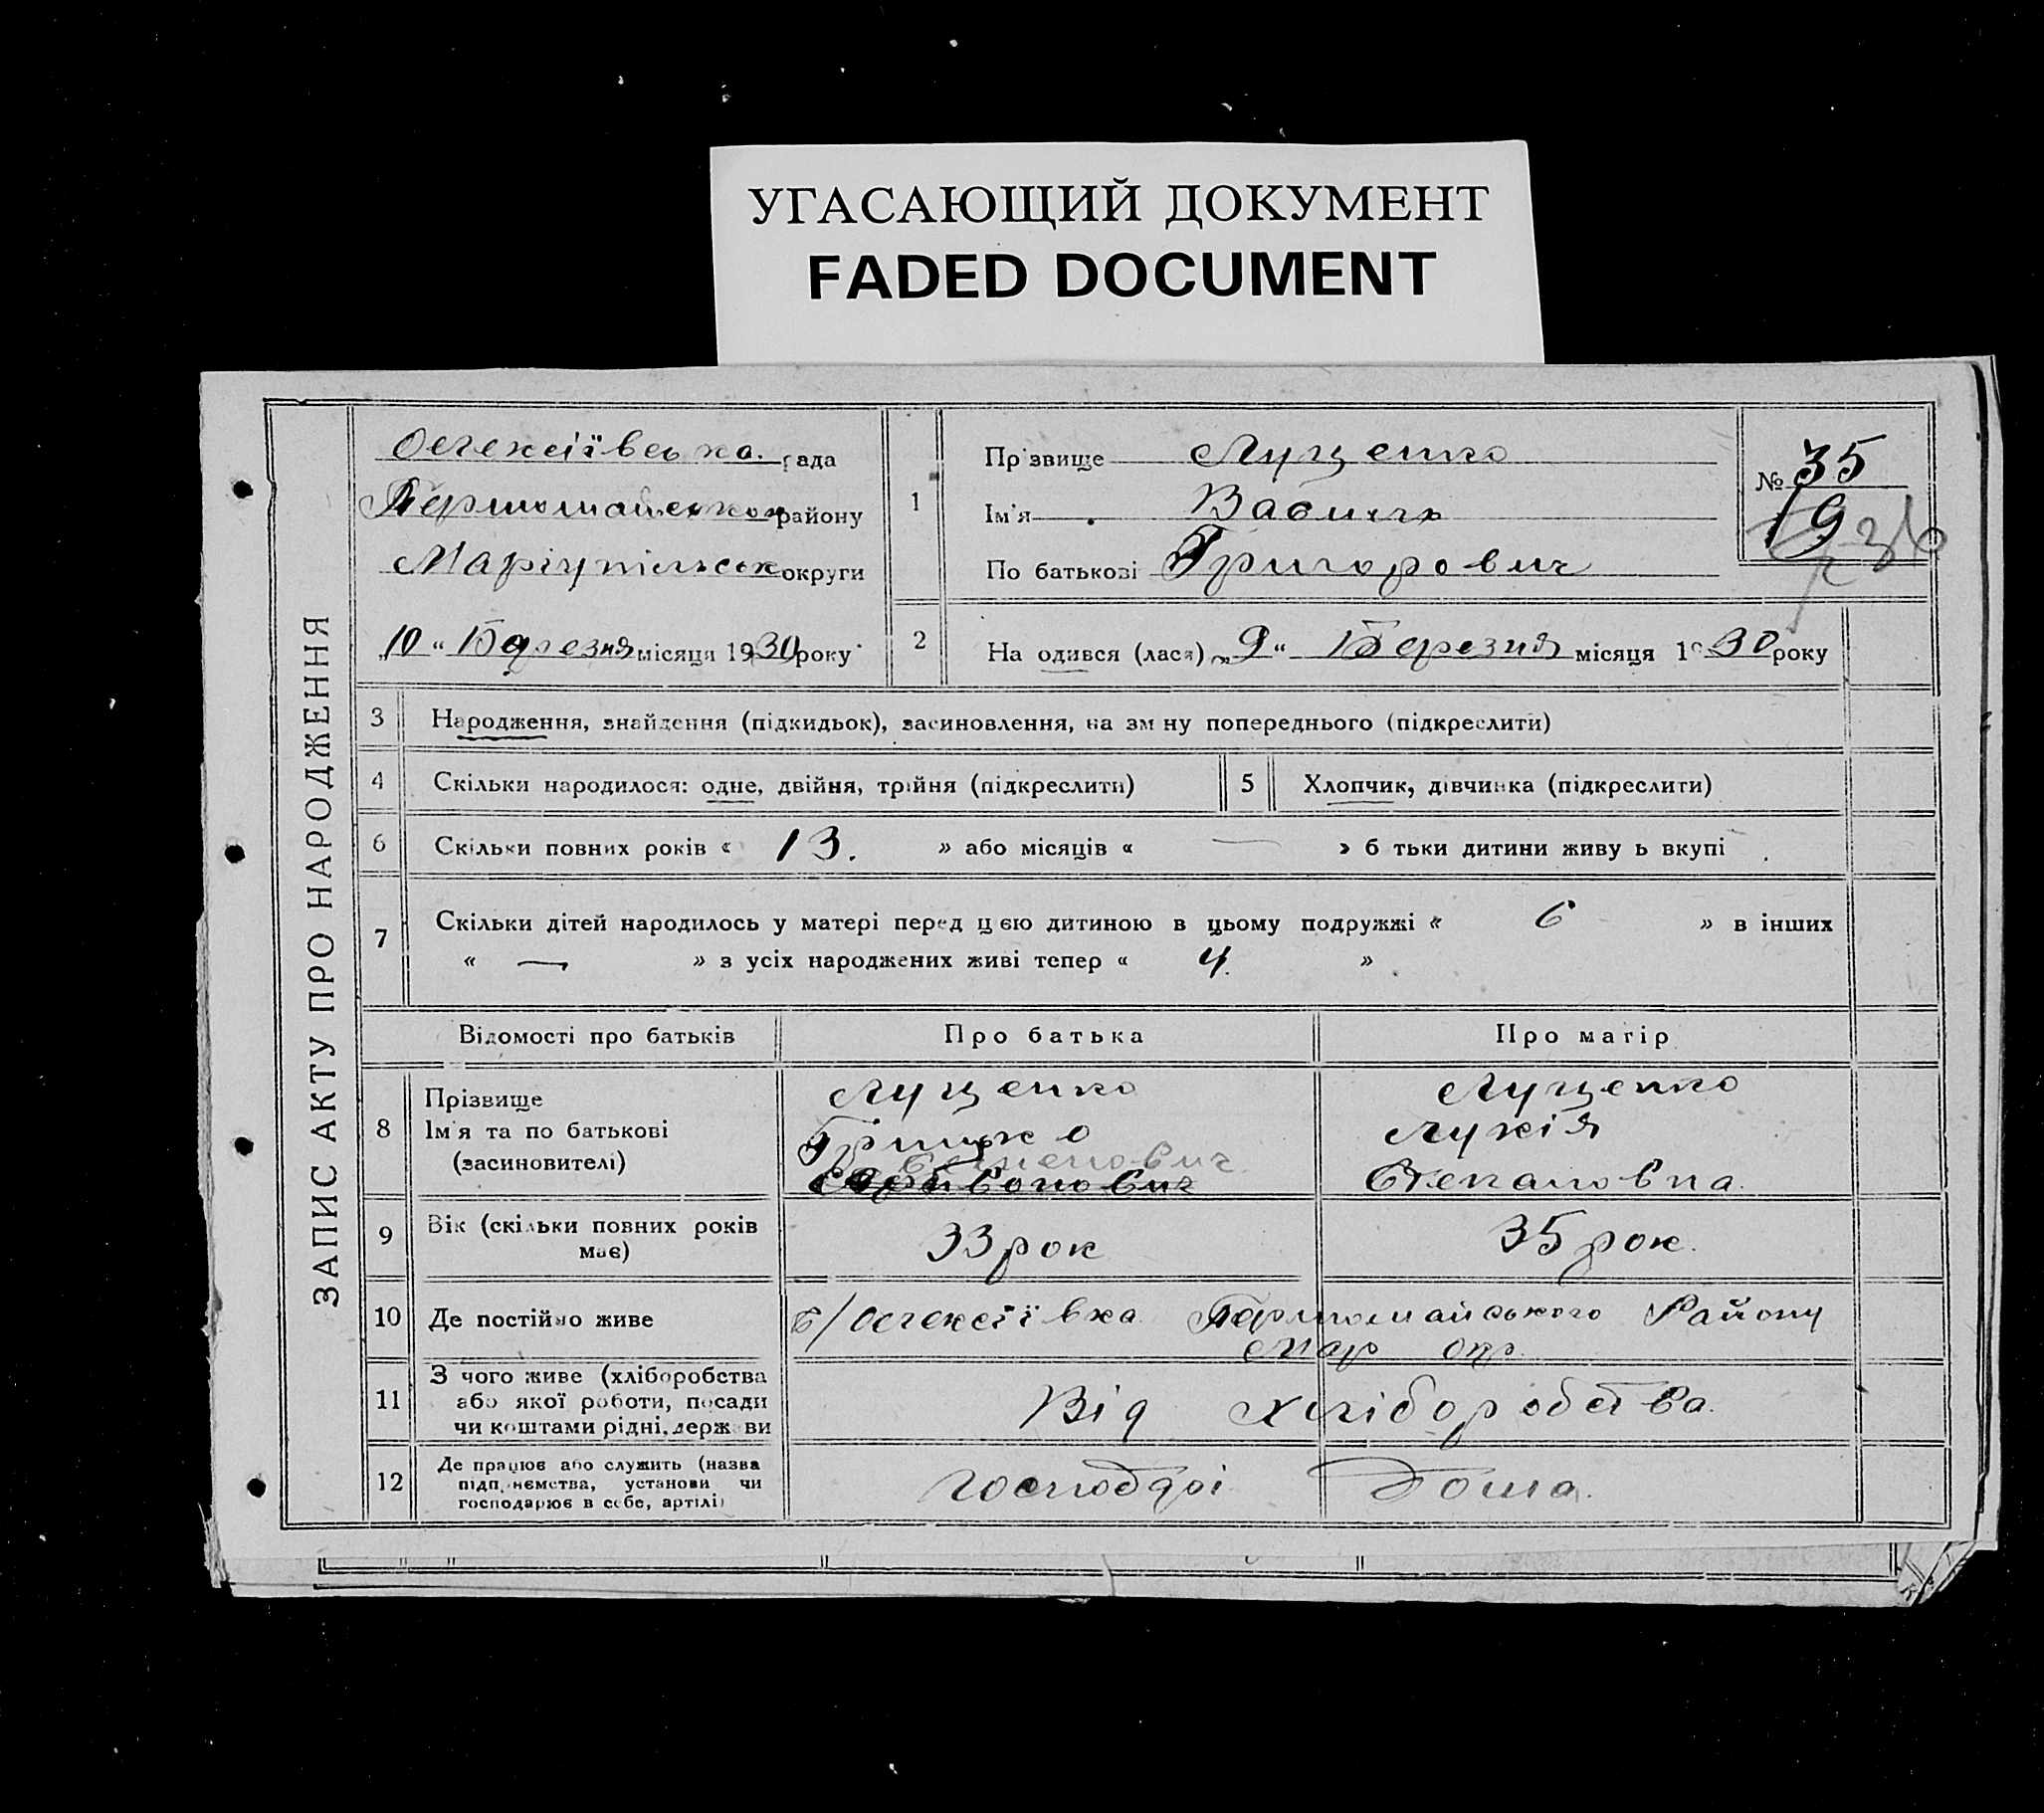 УГАСАЮЩИЙ ДОКУМЕНТ
FADED DOCUMENT
ЗАПИС АКТУ ПРО НАРОДЖЕННЯ
Олексіївська рада
Першомайськой району
Маріупільськ округи
„10“ Березня місяця 1930 року
1
Прізвище Луценко
Ім'я Василь
По батькові Григорович
№ 35
19
2
На одився (лася) „9“ Березня місяця 1930 року
3 Народження, знайдення (підкидьок), засиновлення, на зм ну попереднього (підкреслити)
4 Скільки народилося: одне, двійня, трійня (підкреслити)
5 Хлопчик, дівчинка (підкреслити)
6 Скільки повних років « 13. » або місяців « — » б тьки дитини живу ь вкупі
7 Скільки дітей народилось у матері перед цією дитиною в цьому подружжі « 6 » в інших
« — » з усіх народжених живі тепер « 4. »
Відомості про батьків Про батька Про матір
8 Прізвище
Ім'я та по батькові
(засиновителі)
Луценко
Грицко
Семенович
Луценко
Лукія
Степановна
9 Вік (скільки повних років
має)
33 рок
35 рок.
10 Де постійно живе
С/Олексіївка Першомайського Району
Мар окр.
11 З чого живе (хліборобства
або якої роботи, посади
чи коштами рідні, держ ви
Від хліборобства.
12 Де працює або служить (назва
підп нємства, установи чи
господарює в себе, артілі)
господарі Дома.